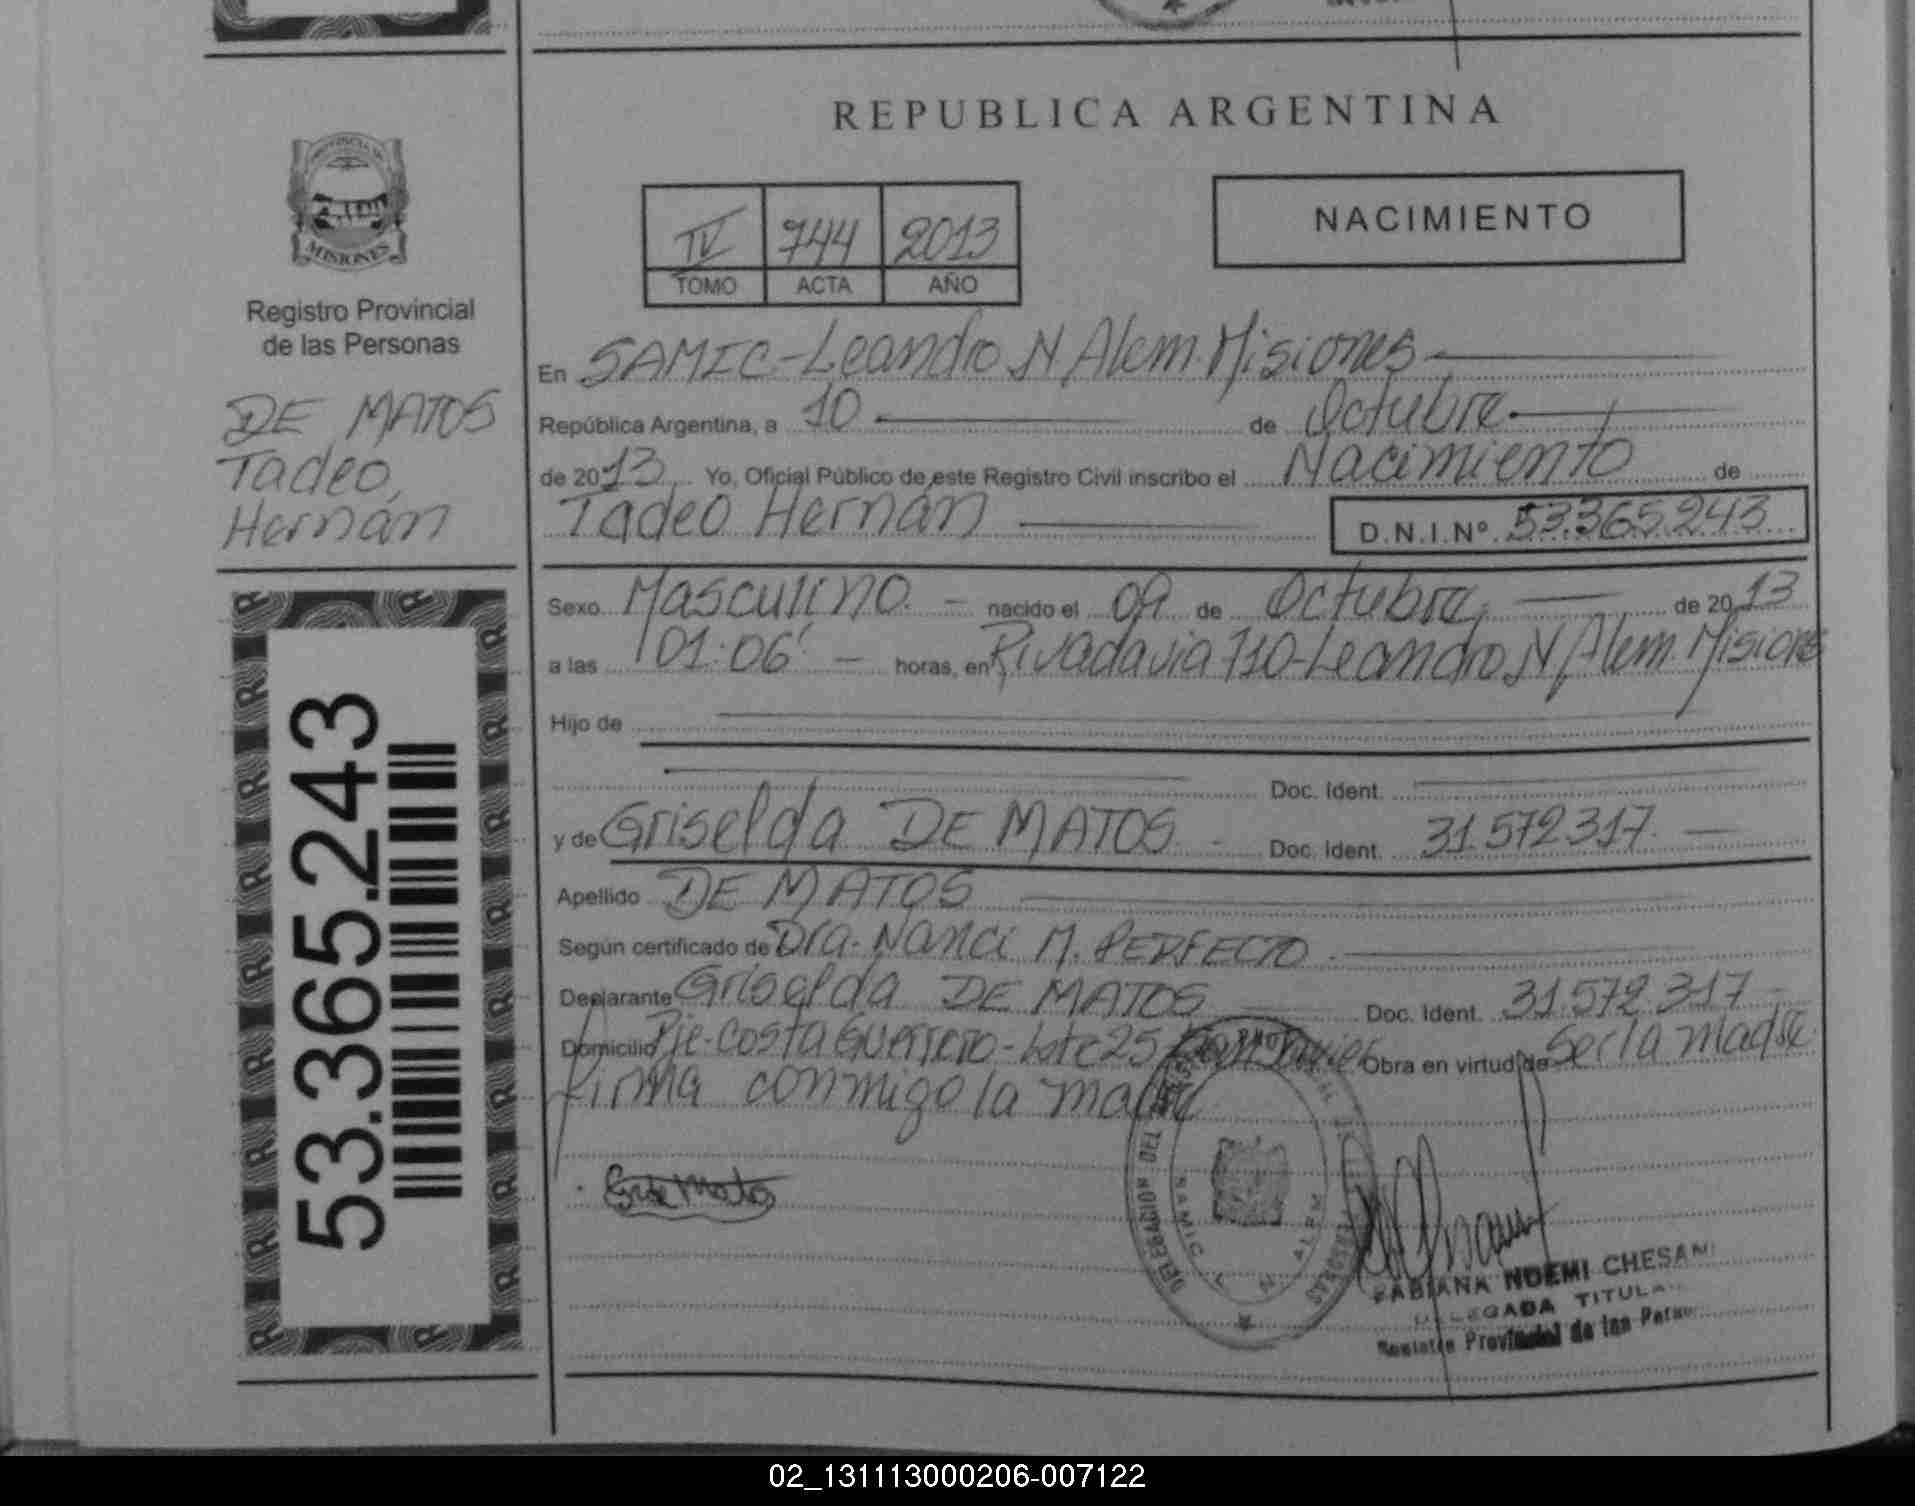 REPUBLICA ARGENTINA
PROVINCIA DE
MISIONES
Registro Provincial
de las Personas
DE MATOS
Tadeo,
Hernán
IV 744 2013
TOMO ACTA AÑO
NACIMIENTO
En SAMIC-Leandro N Alem. Misiones
República Argentina, a 10 de Octubre
de 2013 Yo, Oficial Público de este Registro Civil inscribo el Nacimiento de
Tadeo Hernán D.N.I.Nº 53.365.243
Sexo Masculino. nacido el 09 de Octubre, de 2013
a las 01:06' horas, en Rivadavia 710-Leandro N Alem. Misiones
Hijo de
Doc. Ident.
y de Griselda DE MATOS. Doc. Ident. 31.572.317.
Apellido DE MATOS
Según certificado de Dra. Nanci M. PERFECTO.
Declarante Griselda DE MATOS Doc. Ident. 31.572.317
Domicilio Pje. Costa Guerrero-Lote 25 San Javier Obra en virtud de Ser la madre.
firma conmigo la madre
53.365.243
DELEGACION DEL
SAMIC L N ALEM
FABIANA NOEMI CHESANI
DELEGADA TITULAR
Registro Provincial de las Personas
02_131113000206-007122